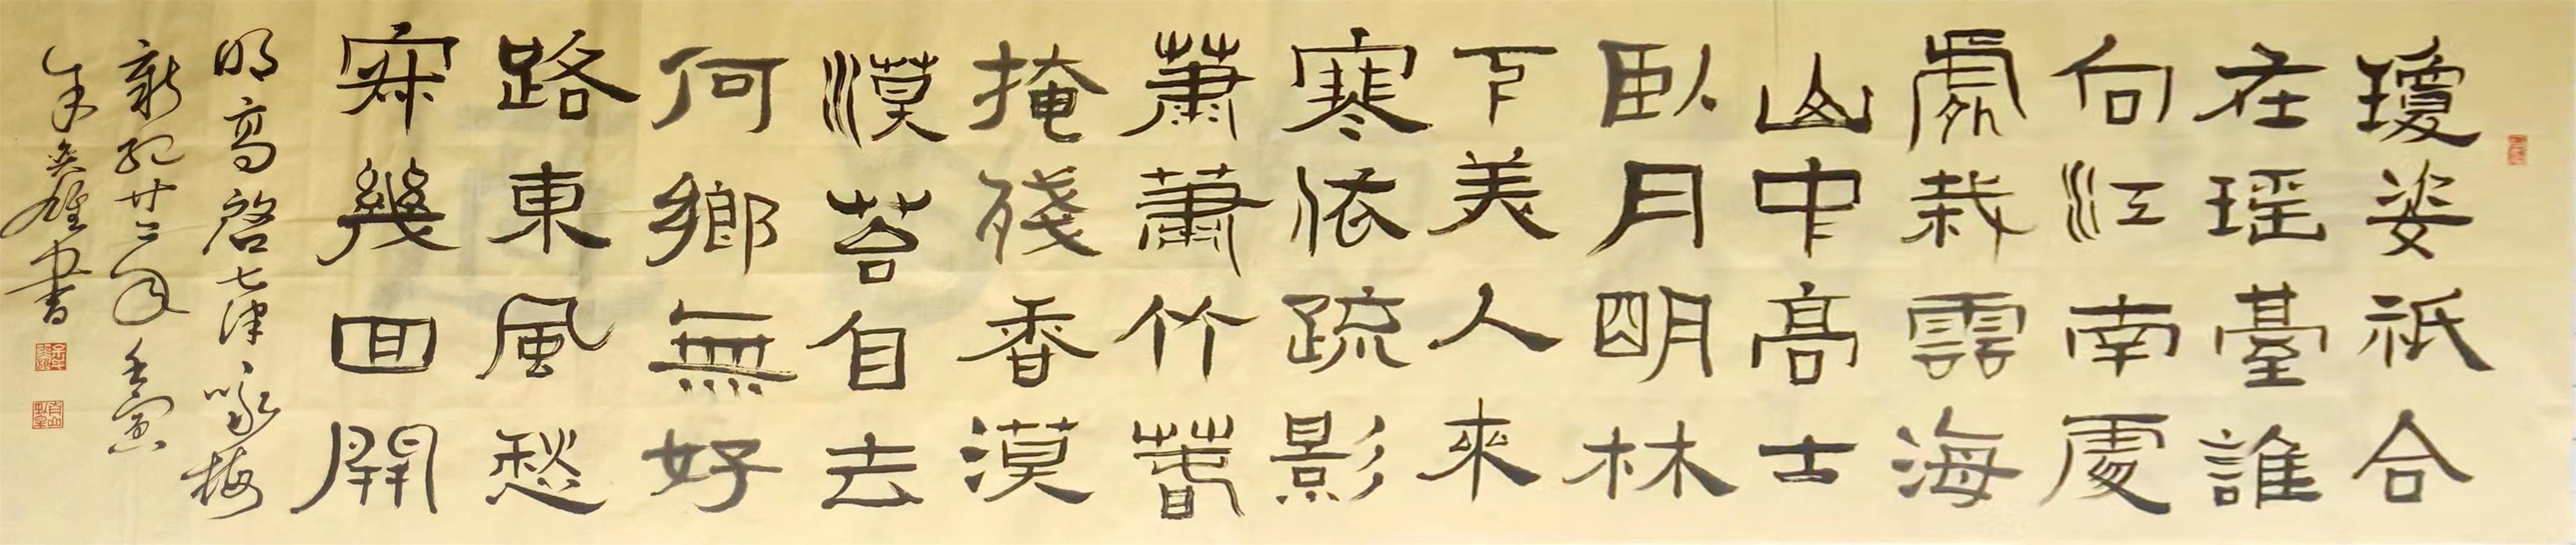 瓊姿祇合
在瑶臺誰
向江南處
處栽雪海
山中高士
臥月明林
下美人來
寒依疏影
蕭蕭竹春
掩殘香漠
漠苔自去
何鄉無好
路東風愁
寂幾回開
明高啓七律咏梅
新紀廿二年壬寅
年雄書